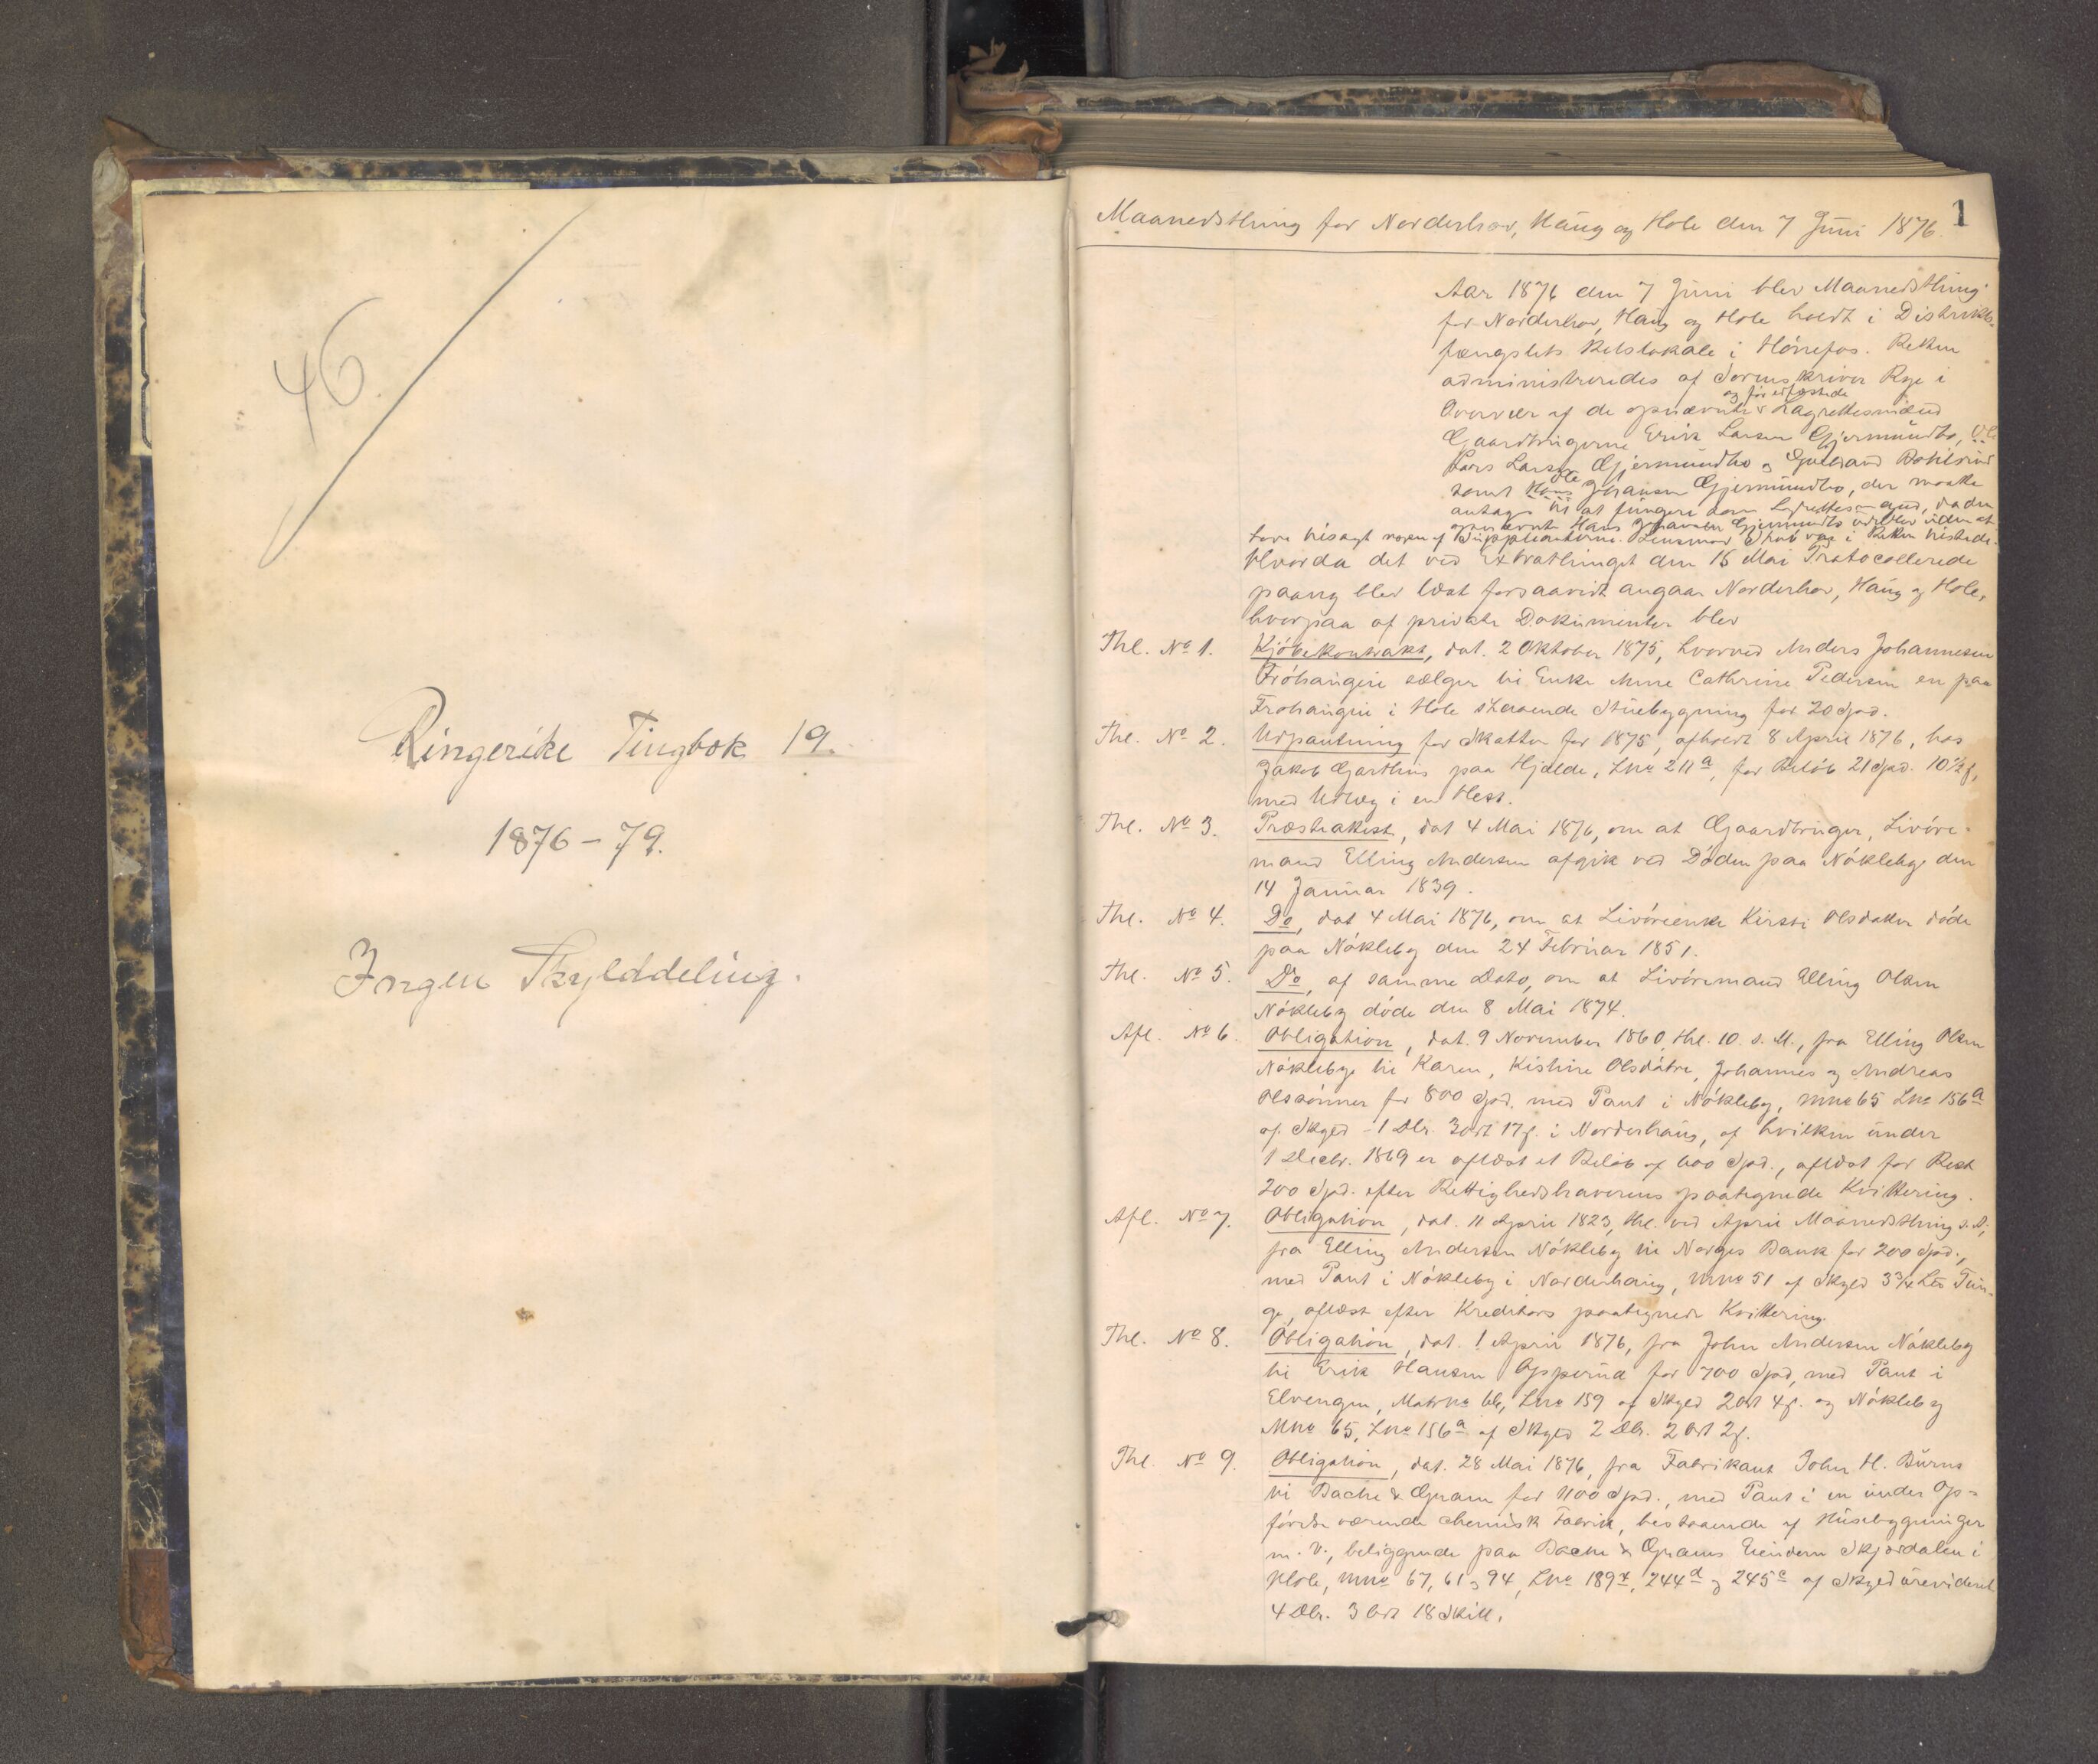 46
Ringerike Tingbok 19.
1876-79.
Ingen Skylddeling.
1
Maanedsthing for Norderhov, Haug og Hole den 7 Juni 1876.
Aar 1876 den 7 Juni blev Maanedsthing
for Norderhov, Haug og Hole holdt i Distrikts-
fængslets Retslokale i Hönefos. Retten
administreredes af Sorenskriver Rye i
og før edfæstede
Overvær af de opnævnte Lagrettesmænd
Gaardbrugerne Erik Larsen Gjermundbo,
Lars Larsen Gjermundbo og Gulbrand
Ole
samt Hans Johansen Gjermundbo, der maatte
antages til at fungere som Lagrettesmand, da den
opnævnte Hans Johansen Gjermundbo udeblev uden at
have tilsagt nogen af Suppleanterne. Lensmand var i Retten tilstede.
Hvorda det ved Extrathinget den 15 Mai Protocollerede
paany blev læst forsaavidt angaar Norderhov, Haug og Hole,
hvorpaa af private Dokumenter blev
Thl. No 1. Kjöbekontrakt, dat. 2 Oktober 1875, hvorved Anders Johannesen
Fröhaugen sælger til Enke Anne Cathrine Pedersen en paa
Frohaugen i Hole staaende Stuebygning for 20 Spd.
Thl. No 2. Udpantning for Skatter for 1875, afholdt 8 April 1876, hos
Jakob Garthus paa Hjelde, Lno 211a, for Belöb 21 Spd. 10½ s,
med Udlæg i en Hest.
Thl. No 3. Præsteattest, dat 4 Mai 1876, om at Gaardbruger, Livöre-
mand Elling Andersen afgik ved Döden paa Nökleby den
14 Januar 1839.
Thl. No 4. Do, dat 4 Mai 1876, om at Livöreenke Kirsti Olsdatter döde
paa Nökleby den 24 Februar 1851.
Thl. No 5. Do, af samme Dato, om at Livöremand Elling Olsen
Nökleby döde den 8 Mai 1874.
Afl. No 6. Obligation, dat. 9 November 1860, thl. 10. s. M., fra Elling Olsen
Nökleby til Karen, Kistine Olsdötre, Johannes og Andreas
Olssönner for 800 Spd. med Pant i Nökleby, Mno 65 Lno 156a
af Skyld - 1 Dlr. 3 ort 17 s. i Norderhaug, af hvilken under
1 Decbr. 1869 er aflæst et Belöb af 600 Spd., aflæst for Rest
200 Spd. efter Rettighedshaverens paategnede Kvittering.
Afl. No 7. Obligation, dat. 11 April 1823, thl. ved April Maanedsthing s. A.,
fra Elling Andersen Nökleby til Norges Bank for 200 Spd.,
med Pant i Nökleby i Norderhaug, Mno 51 af Skyld 3¾ Lis Tun-
ge, aflæst efter Kreditors paategnede Kvittering.
Thl. No 8. Obligation, dat. 1 April 1876, fra John Andersen Nökleby
til Erik Hansen Opperud for 700 Spd, med Pant i
Elvengen, Matrno 66, Lno 159 af Skyld 2 ort 4 s. og Nökleby
Mno 65, Lno 156a af Skyld 2 Dlr. 2 Ort 2 s.
Thl. No 9. Obligation, dat. 28 Mai 1876, fra Fabrikant John H. Burns
til Bache & Gram for 1100 Spd., med Pant i en under Op-
förelse værende chemisk Fabrik, bestaaende af Husebygninger
m. v., beliggende paa Bache & Grams Eiendom Skjærdalen i
Hole, Mno 67, 61 og 94, Lno 189x, 244d og 245c af Skyld urevideret
4 Dlr. 3 Ort 18 Skill.